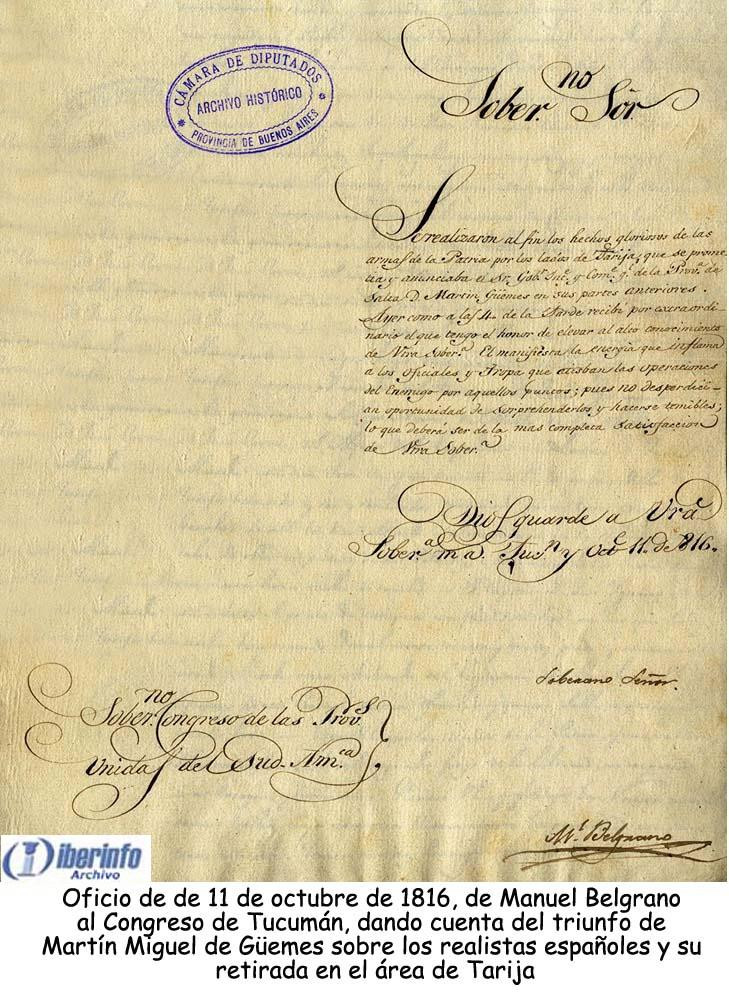 CÁMARA DE DIPUTADOS
ARCHIVO HISTÓRICO
* PROVINCIA DE BUENOS AIRES *
Sober.no Sōr.
Se realizaron al fin los hechos gloriosos de las
armas de la Patria por los lados de Tarija, que se prome
tia, y anunciaba el Sr. Gob.r Int.e y Com.e g.l de la Prov.a de
Salta D. Martin Güemes en sus partes anteriores.
Ayer como a las 4. de la Tarde recibí por extraordi-
nario el que tengo el honor de elevar al alto conocimiento
de Vtra Sober.a El manifiesta la energia que inflama
a los oficiales y Tropa que acaban las operaciones
del Enemigo por aquellos puntos; pues no desperdici-
an oportunidad de sorprehenderlos, y hacerse temibles;
lo que deberá ser de la mas completa satisfaccion
de Vtra Sober.a
Dios guarde a Vra
Sober.a m.a. Tuc.n y Oct.e 11. de 816.
Soberano Señor.
Sober.no Congreso de las Prov.s
Unidas del Sud-Am.ca
M.l Belgrano
iberinfo
Archivo
Oficio de de 11 de octubre de 1816, de Manuel Belgrano
al Congreso de Tucumán, dando cuenta del triunfo de
Martín Miguel de Güemes sobre los realistas españoles y su
retirada en el área de Tarija